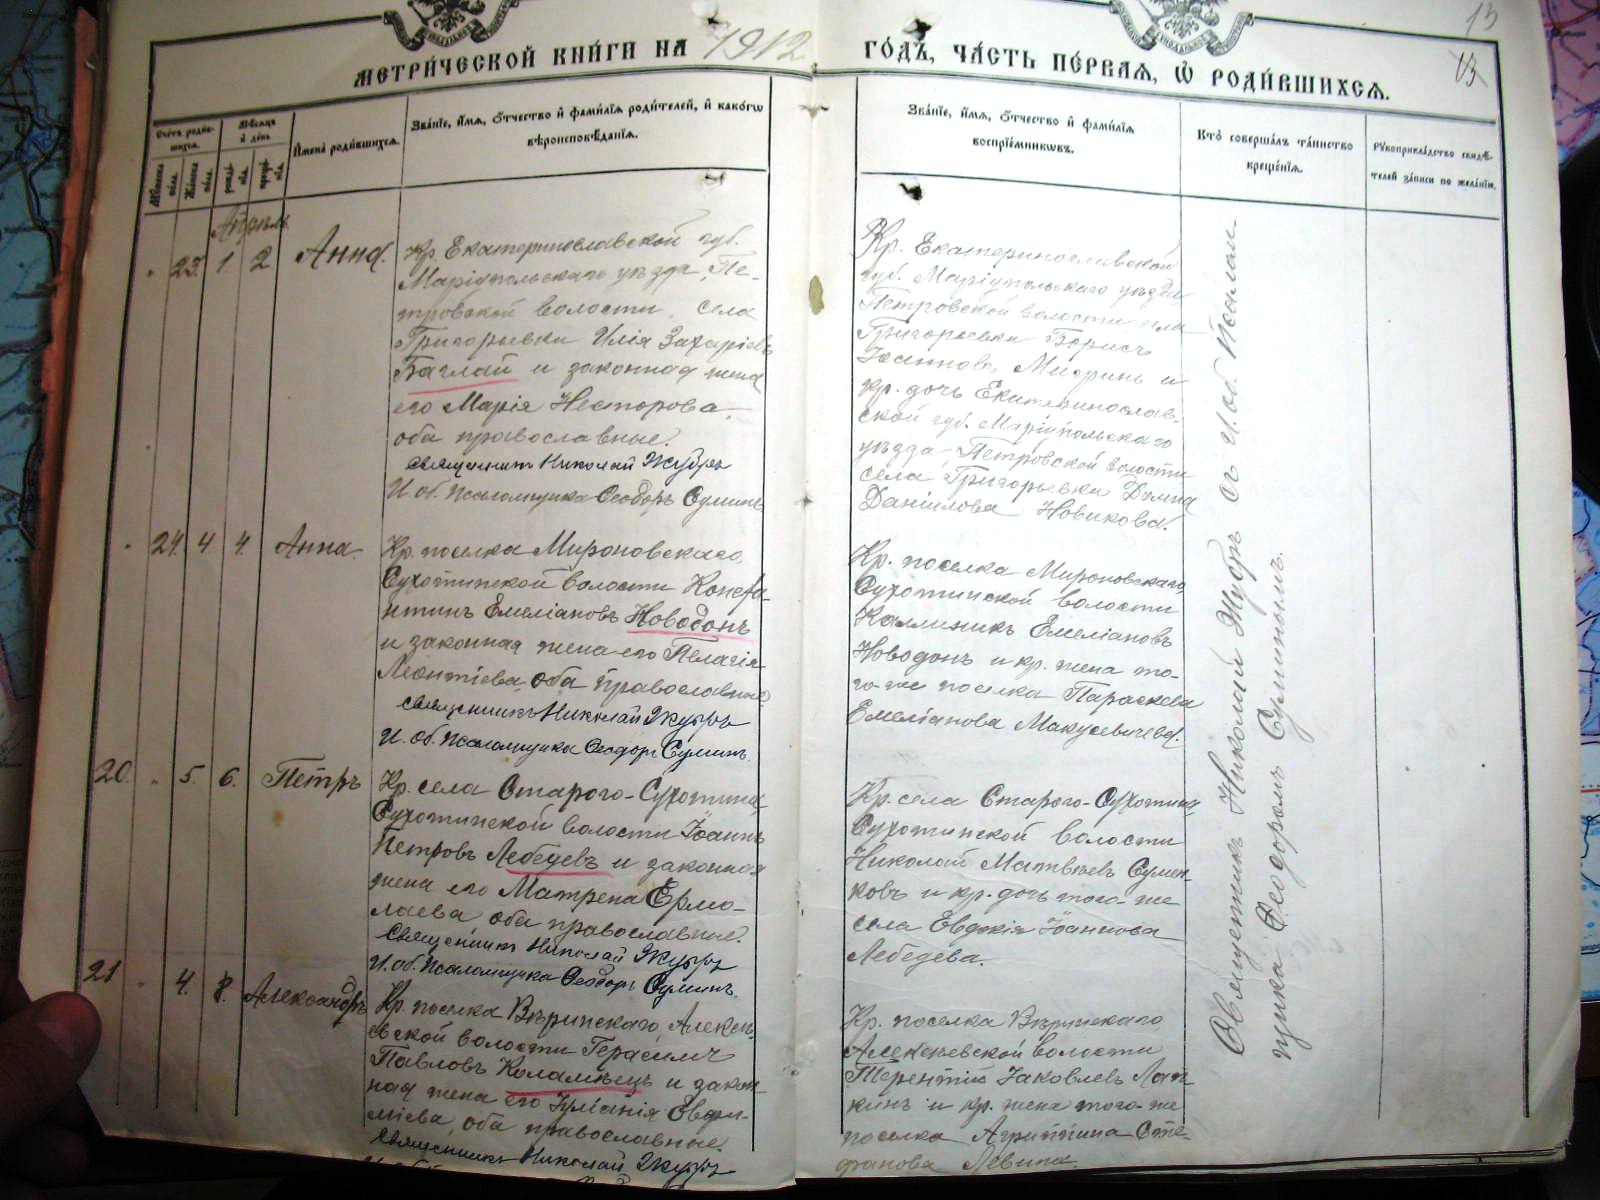 13
13
МЕТРИ́ЧЕСКОЙ КНИ́ГИ НА 1912 ГО́ДЪ, ЧА́СТЬ ПЕ́РВАЯ, Ѡ҆ РОДИ́ВШИХСЯ.
Счетъ роди́вшихся.
Мужеска пола.
Женска пола.
Мѣсяцъ и день
рожденія.
крещенія.
И҆мена̀ роди́вшихся.
Зва́нїе, и҆́мя, ѻ҆́тчество и҆ фами́лїя роди́телей, и҆ како́гѡ
вѣроисповѣ́данїя.
Зва́нїе, и҆́мя, ѻ҆́тчество и҆ фами́лїя
воспрїе́мниковъ.
Кто̀ соверша́лъ та́инство
креще́нїя.
Рукоприкла́дство свидѣ́-
телей за́писи по жела́нїю.
Апрѣль
23. 1 2 Анна.
Кр. Екатеринославской губ.
Маріупольскаго уѣзда, Пе-
тровской волости, села
Григорьевки Илія Захаріевъ
Баглай и законная жена
его Марія Несторова,
оба православные.
Священникъ Николай
И. об. псаломщика Ѳеодоръ Суминъ
Кр. Екатеринославской
губ. Маріупольскаго уѣзда
Петровской волости села
Григорьевки Борисъ
Іоанновъ и
кр. дочь Екатеринослав-
ской губ. Маріупольскаго
уѣзда, Петровской волости
села Григорьевки
Даніилова Новикова.
24. 4 4. Анна.
Кр. поселка Мироновскаго,
Сухотинской волости Конста-
нтинъ Емеліановъ Новодонъ
и законная жена его Пелагія
Леонтіева, оба православные
Священникъ Николай
И. об. псаломщика Ѳеодоръ Суминъ.
Кр. поселка Мироновскаго,
Сухотинской волости
Каллиникъ Емеліановъ
Новодонъ и кр. жена то-
го-же поселка Параскева
Емеліанова
20. 5. 6. Петръ
Кр. села Старого-Сухотина,
Сухотинской волости Іоаннъ
Петровъ Лебедевъ и законная
жена его Матрена Ермо-
лаева оба православные.
Священникъ Николай
И. об. псаломщика Ѳеодоръ Суминъ.
Кр. села Старого-Сухотина,
Сухотинской волости
Николай Матвѣевъ Сумен-
ковъ и кр. дочь того-же
села Евдокія Іоаннова
Лебедева.
21 4. 8. Александръ
Кр. поселка Вѣринскаго, Алексѣ-
евской волости Герасимъ
Павловъ Коламѣецъ и закон-
ная жена его Іуліанія Евфи-
міева, оба православные.
Священникъ Николай
Кр. поселка Вѣринскаго
Алексѣевской волости
Терентій Іаковлевъ
и кр. жена того-же
поселка Агриппина Сте-
фанова Левина.
Священникъ Николай съ И. об. псалом-
щика Ѳеодоромъ Суминымъ.